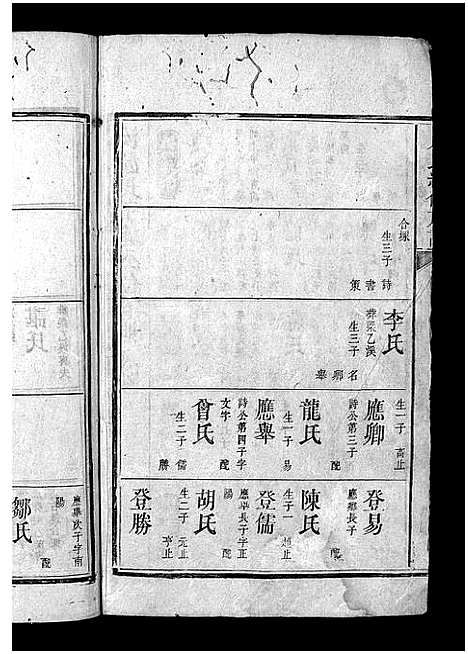 合塚
生三子
詩
書
策
李氏
葬梁乙溪
生三子
名
卿
舉
生一子
高止
應卿
詩公第三子
配
龍氏
生一子
易
應舉
詩公第四子字
文字
配
曾氏
生二子
儒
勝
登易
應卿長子
配
陳氏
生子一
起止
登儒
應舉長子字正
陽
配
胡氏
生二子
元止
亨止
登勝
應舉次子字南
陽
配
鄒氏